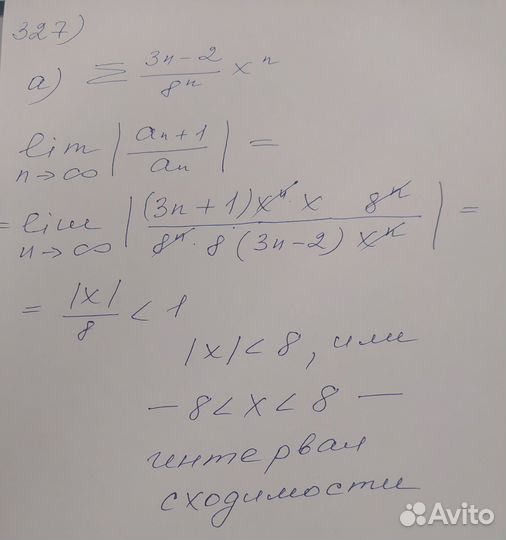 327)
a) Σ (3n-2)/8ⁿ xⁿ
lim n→∞ |aₙ+1/aₙ| =
= lim n→∞ |(3n+1)xⁿ·x 8ⁿ / 8ⁿ·8(3n-2)xⁿ| =
= |x|/8 < 1
|x|<8, или
-8<x<8 —
интервал
сходимости
Avito